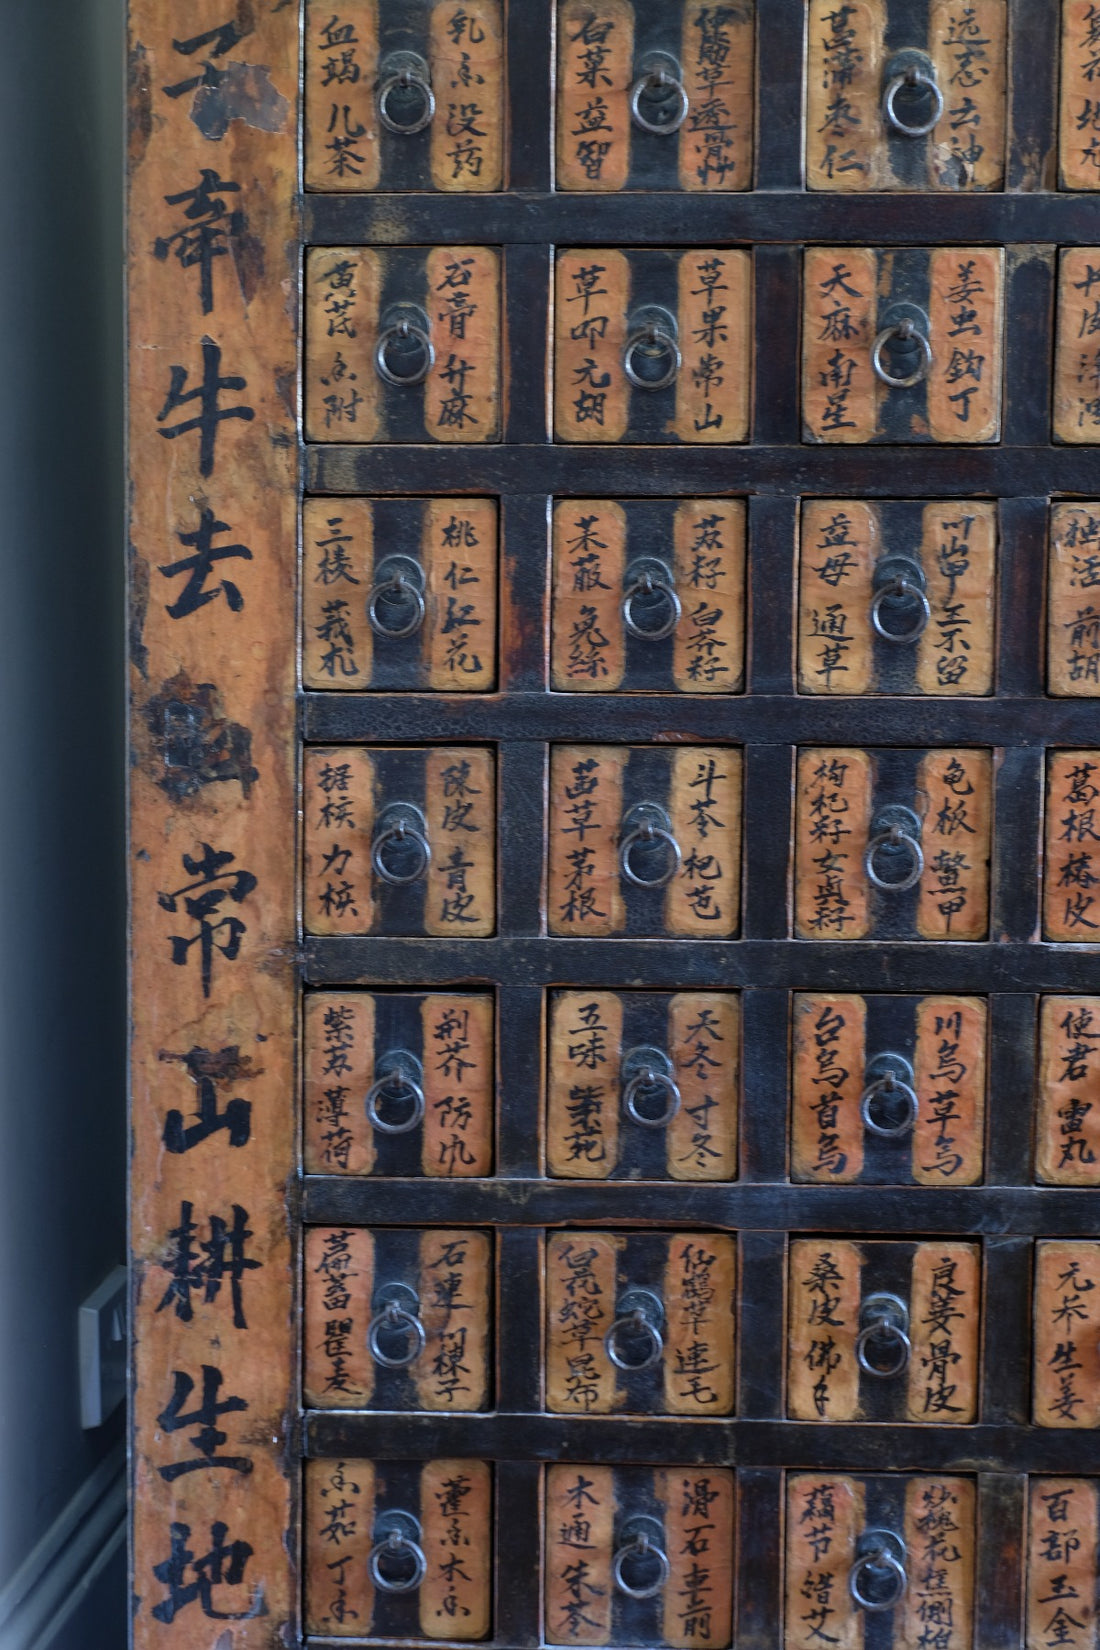 子牵牛去常山耕生地
乳香没药
血竭儿茶
伸筋草透骨草
白菓益智
远志云神
菖蒲枣仁
石膏升麻
黄芪香附
草果常山
草叩元胡
姜虫鈎丁
天麻南星
桃仁红花
三棱莪朮
苏籽白芥籽
莱菔兔絲
川山甲王不留
益母通草
独活前胡
陳皮青皮
梹榔
斗苓杷芭
茜草茅根
龟板鳖甲
枸杞籽女貞籽
葛根椿皮
荆芥防风
紫苏薄荷
天冬寸冬
五味紫苑
川烏草烏
台烏首烏
使君雷丸
石連川楝子
萹蓄瞿麦
仙鶴草連毛
白花蛇草昆布
良姜骨皮
桑皮佛手
元参生姜
藿香木香
香茹丁香
滑石車前
木通朱苓
藕节
百部玉金